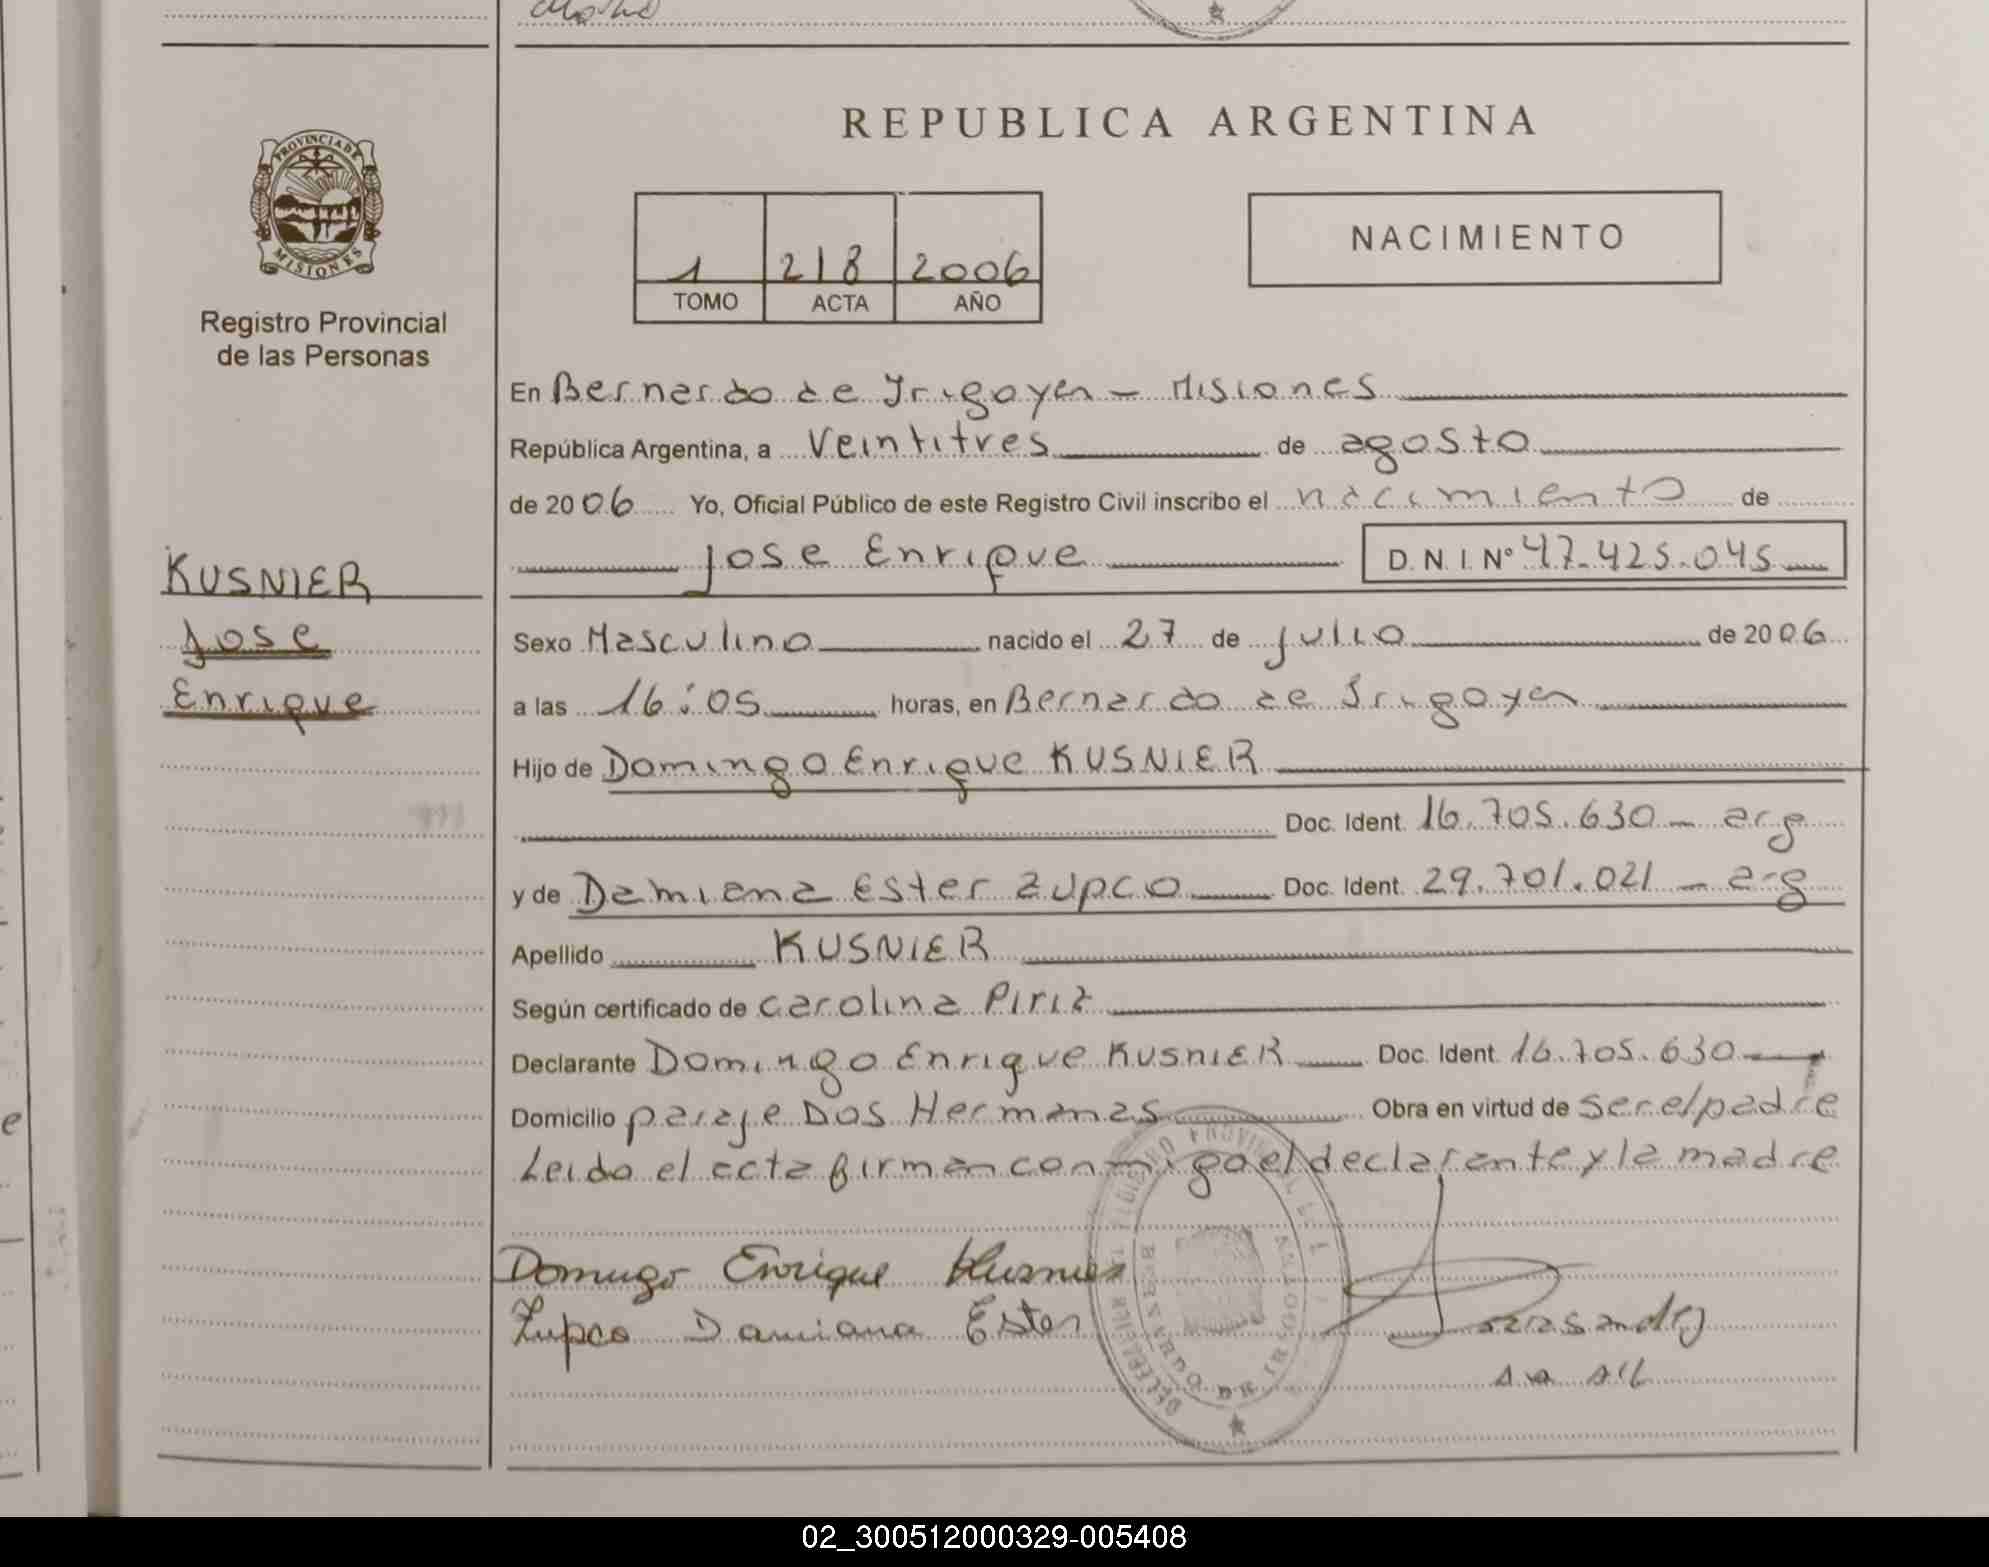 REPUBLICA ARGENTINA
PROVINCIA DE
MISIONES
Registro Provincial
de las Personas
1 218 2006
TOMO ACTA AÑO
NACIMIENTO
En Bernardo de Irigoyen - Misiones
República Argentina, a Veintitres de agosto
de 2006 Yo, Oficial Público de este Registro Civil inscribo el nacimiento de
Jose Enrique D.N.I. Nº 47.425.045
KUSNIER
Jose
Enrique
Sexo Masculino nacido el 27 de julio de 2006
a las 16:05 horas, en Bernardo de Irigoyen
Hijo de Domingo Enrique KUSNIER
Doc. Ident. 16.705.630 - arg
y de Damiana Ester Zupco Doc. Ident. 29.701.021 - arg
Apellido KUSNIER
Según certificado de Carolina Piriz
Declarante Domingo Enrique KUSNIER Doc. Ident. 16.705.630
Domicilio paraje Dos Hermanas Obra en virtud de ser el padre
Leido el acta firman conmigo el declarante y la madre
Domingo Enrique Kusnier
Zupco Damiana Ester
02_300512000329-005408